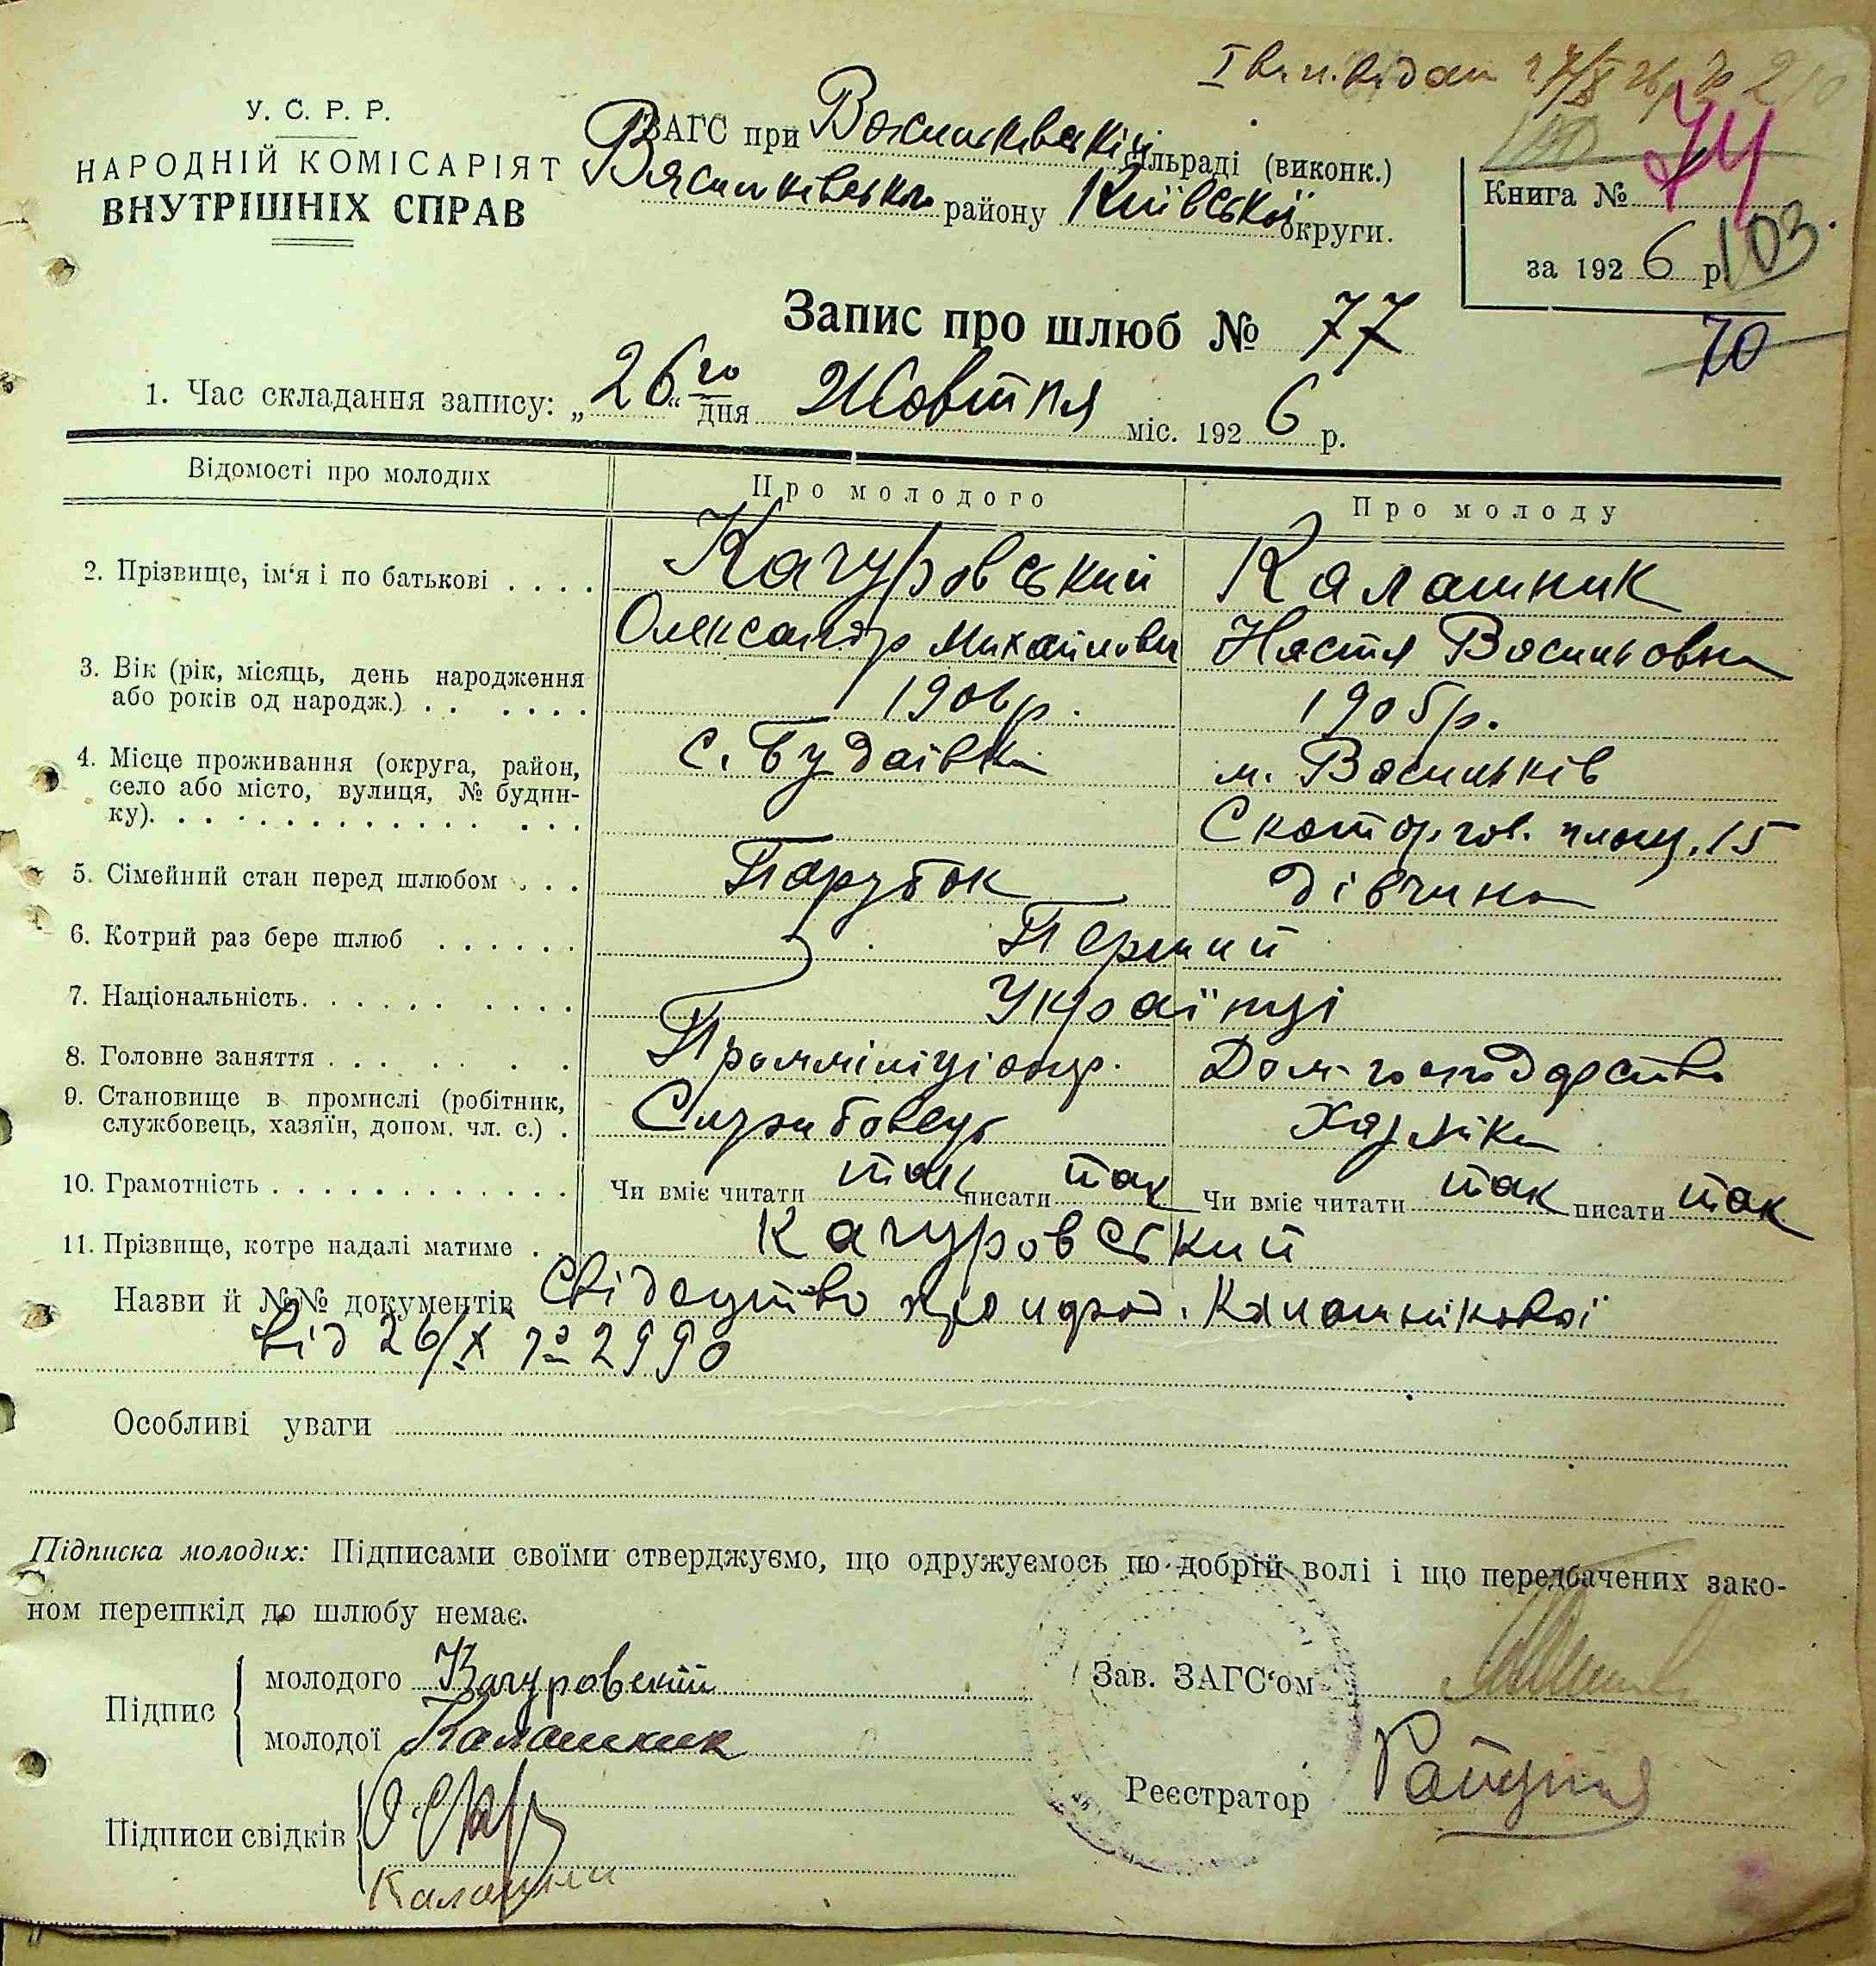 У. С. Р. Р.
НАРОДНІЙ КОМІСАРІЯТ
ВНУТРІШНІХ СПРАВ
ЗАГС при Васильківській сільраді (виконк.)
Васильківського району Київської округи.
Книга № 74
за 1926 р. 103.
70
Запис про шлюб № 77
1. Час складання запису: „26го“ дня Жовтня міс. 1926 р.
Відомості про молодих Про молодого Про молоду
2. Прізвище, ім‘я і по батькові . . . . Качуровський Калашник
Олександр Михайлович Настя Васильовна
3. Вік (рік, місяць, день народження
або років од народж.) . . . . . . 1906р. 1905р.
4. Місце проживання (округа, район, с. Будаівка м. Васильків
село або місто, вулиця, № будин-
ку). . . . . . . . . . . . . . . Скоторгов. площ. 15
5. Сімейний стан перед шлюбом . . . Парубок дівчина
6. Котрий раз бере шлюб . . . . . . Перший
7. Національність. . . . . . . . . . Українці
8. Головне заняття . . . . . . . Промміліціонер. Дом. господарство
9. Становище в промислі (робітник,
службовець, хазяїн, допом. чл. с.) . Службовець
10. Грамотність . . . . . . . . . . . . Чи вміє читати так писати так Чи вміє читати так писати так
11. Прізвище, котре надалі матиме . . Качуровський
Назви й №№ документів Свідоцтво про Калашнікової
від 26/X № 2990
Особливі уваги
Підписка молодих: Підписами своїми стверджуємо, що одружуємось по добрій волі і що передбачених зако-
ном перешкід до шлюбу немає.
Підпис
молодого Качуровский
молодої Калашник
Зав. ЗАГС‘ом
Реєстратор
Підписи свідків